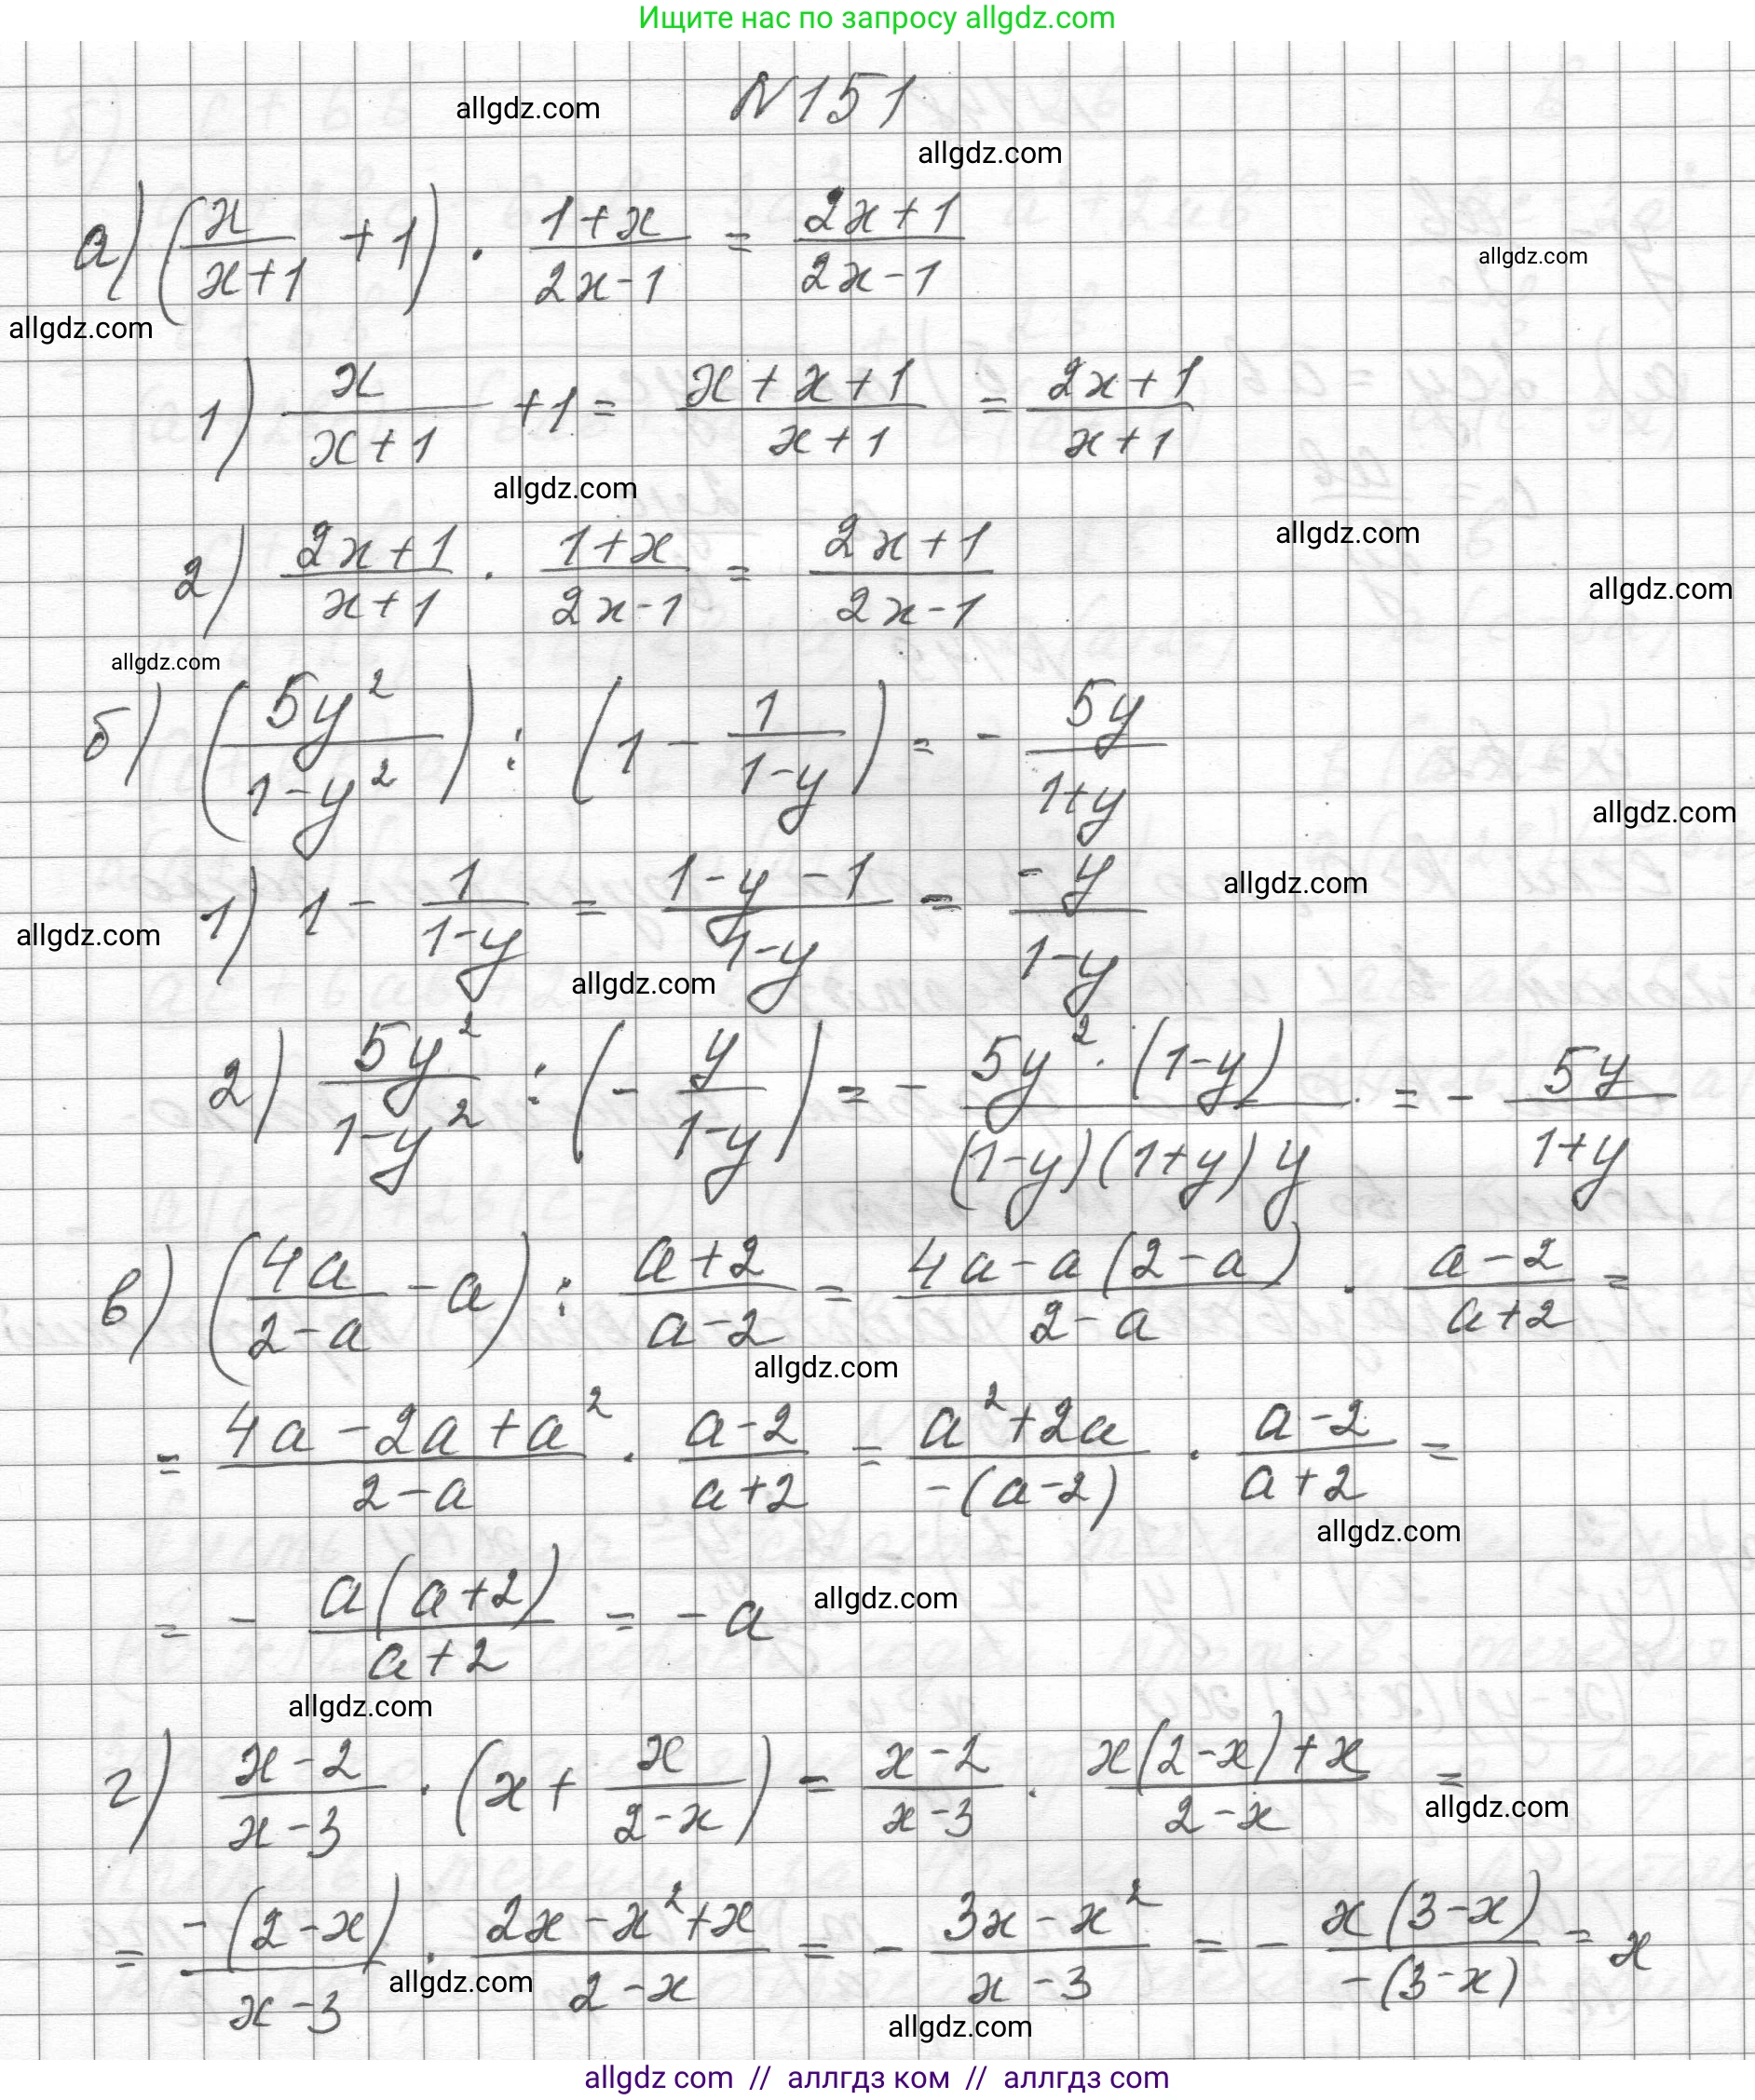 Ищите нас по запросу allgdz.com
allgdz.com
№151
allgdz.com
а) (x/(x+1) + 1) · (1+x)/(2x-1) = (2x+1)/(2x-1)
allgdz.com
allgdz.com
1) x/(x+1) + 1 = (x+x+1)/(x+1) = (2x+1)/(x+1)
allgdz.com
allgdz.com
2) (2x+1)/(x+1) · (1+x)/(2x-1) = (2x+1)/(2x-1)
allgdz.com
allgdz.com
б) (5y²/(1-y²)) : (1 - 1/(1-y)) = - 5y/(1+y)
allgdz.com
allgdz.com
1) 1 - 1/(1-y) = (1-y-1)/(1-y) = -y/(1-y)
allgdz.com
allgdz.com
2) 5y²/(1-y²) : (- y/(1-y)) = - 5y²·(1-y)/((1-y)(1+y)y) = - 5y/(1+y)
в) (4a/(2-a) - a) : (a+2)/(a-2) = (4a-a(2-a))/(2-a) · (a-2)/(a+2) =
allgdz.com
= (4a-2a+a²)/(2-a) · (a-2)/(a+2) = (a²+2a)/(-(a-2)) · (a-2)/(a+2) =
allgdz.com
= - a(a+2)/(a+2) = -a
allgdz.com
allgdz.com
г) (x-2)/(x-3) · (x + x/(2-x)) = (x-2)/(x-3) · (x(2-x)+x)/(2-x) =
allgdz.com
= -(2-x)/(x-3) · (2x-x²+x)/(2-x) = - (3x-x²)/(x-3) = - x(3-x)/(-(3-x)) = x
allgdz.com
allgdz.com
allgdz com // аллгдз ком // аллгдз com